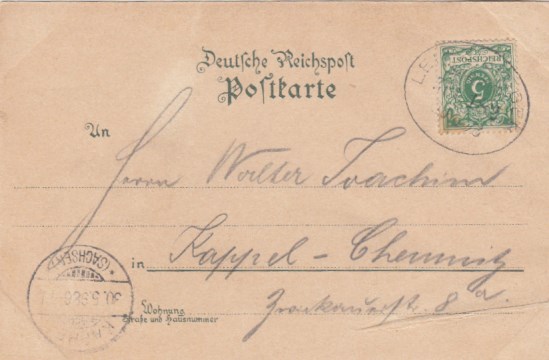 Deutsche Reichspost
Postkarte
REICHSPOST
5
An
Herrn Walter Joachim
in Kappel-Chemnitz
Wohnung
Straße und Hausnummer
Zwickauerstr. 8a.
(SACHSEN)
30.5.98